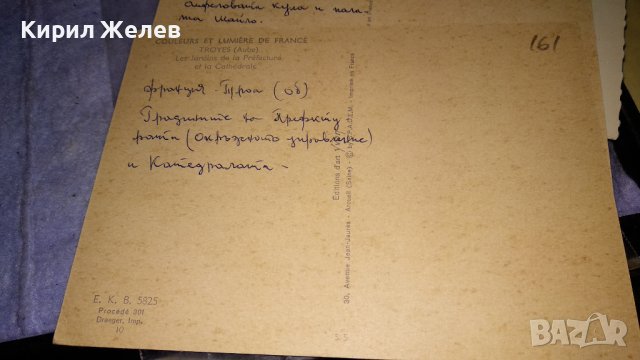 Айфеловата кула и пала-
та Шайо.
Кирил Желев
COULEURS ET LUMIÈRE DE FRANCE
TROYES (Aube)
Les Jardins de la Préfecture
et la Cathédrale
161
Франция - Троа (Об)
Градините на Префекту
рата (Окръжното управление)
и Катедралата -
Editions d'art
30, Avenue Jean-Jaurès - Arcueil (Seine)
Imprimé en France
E. K. B. 5825
Procédé 301
Draeger, Imp.
10
BAZAR.BG